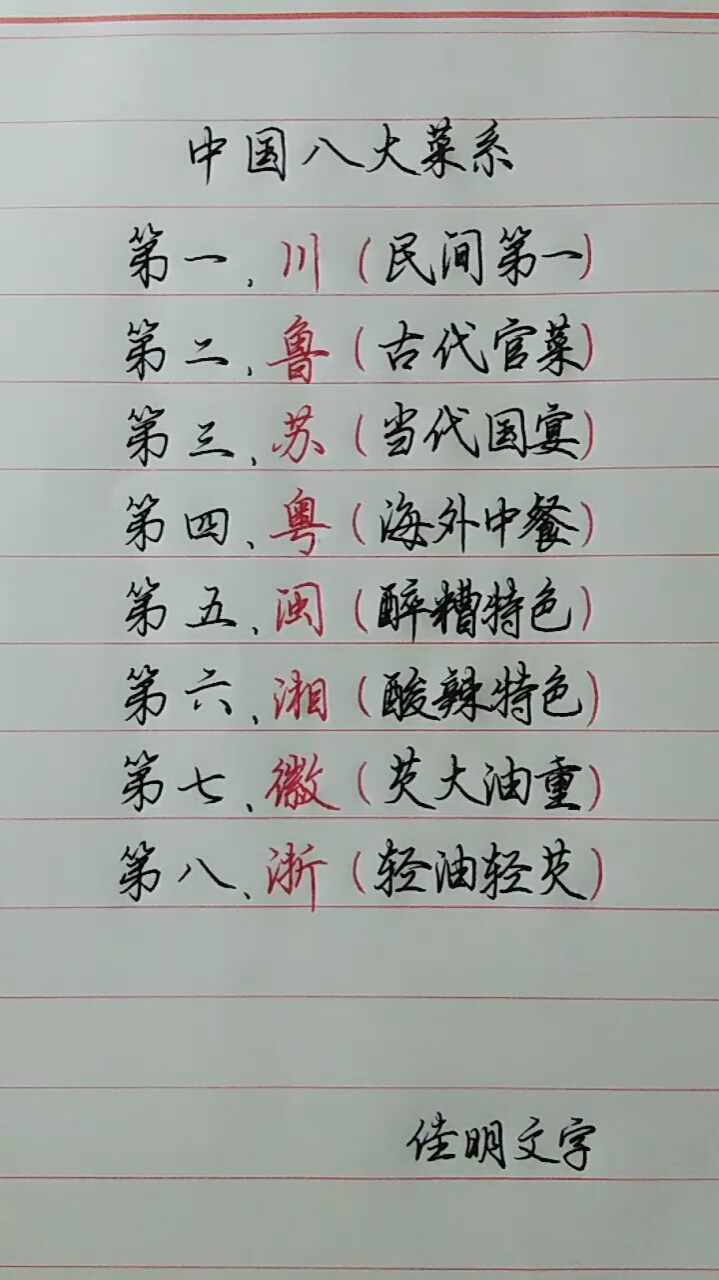 中国八大菜系
第一、川(民间第一)
第二、鲁(古代官菜)
第三、苏(当代国宴)
第四、粤(海外中餐)
第五、闽(醉糟特色)
第六、湘(酸辣特色)
第七、徽(芡大油重)
第八、浙(轻油轻芡)
佳明文字